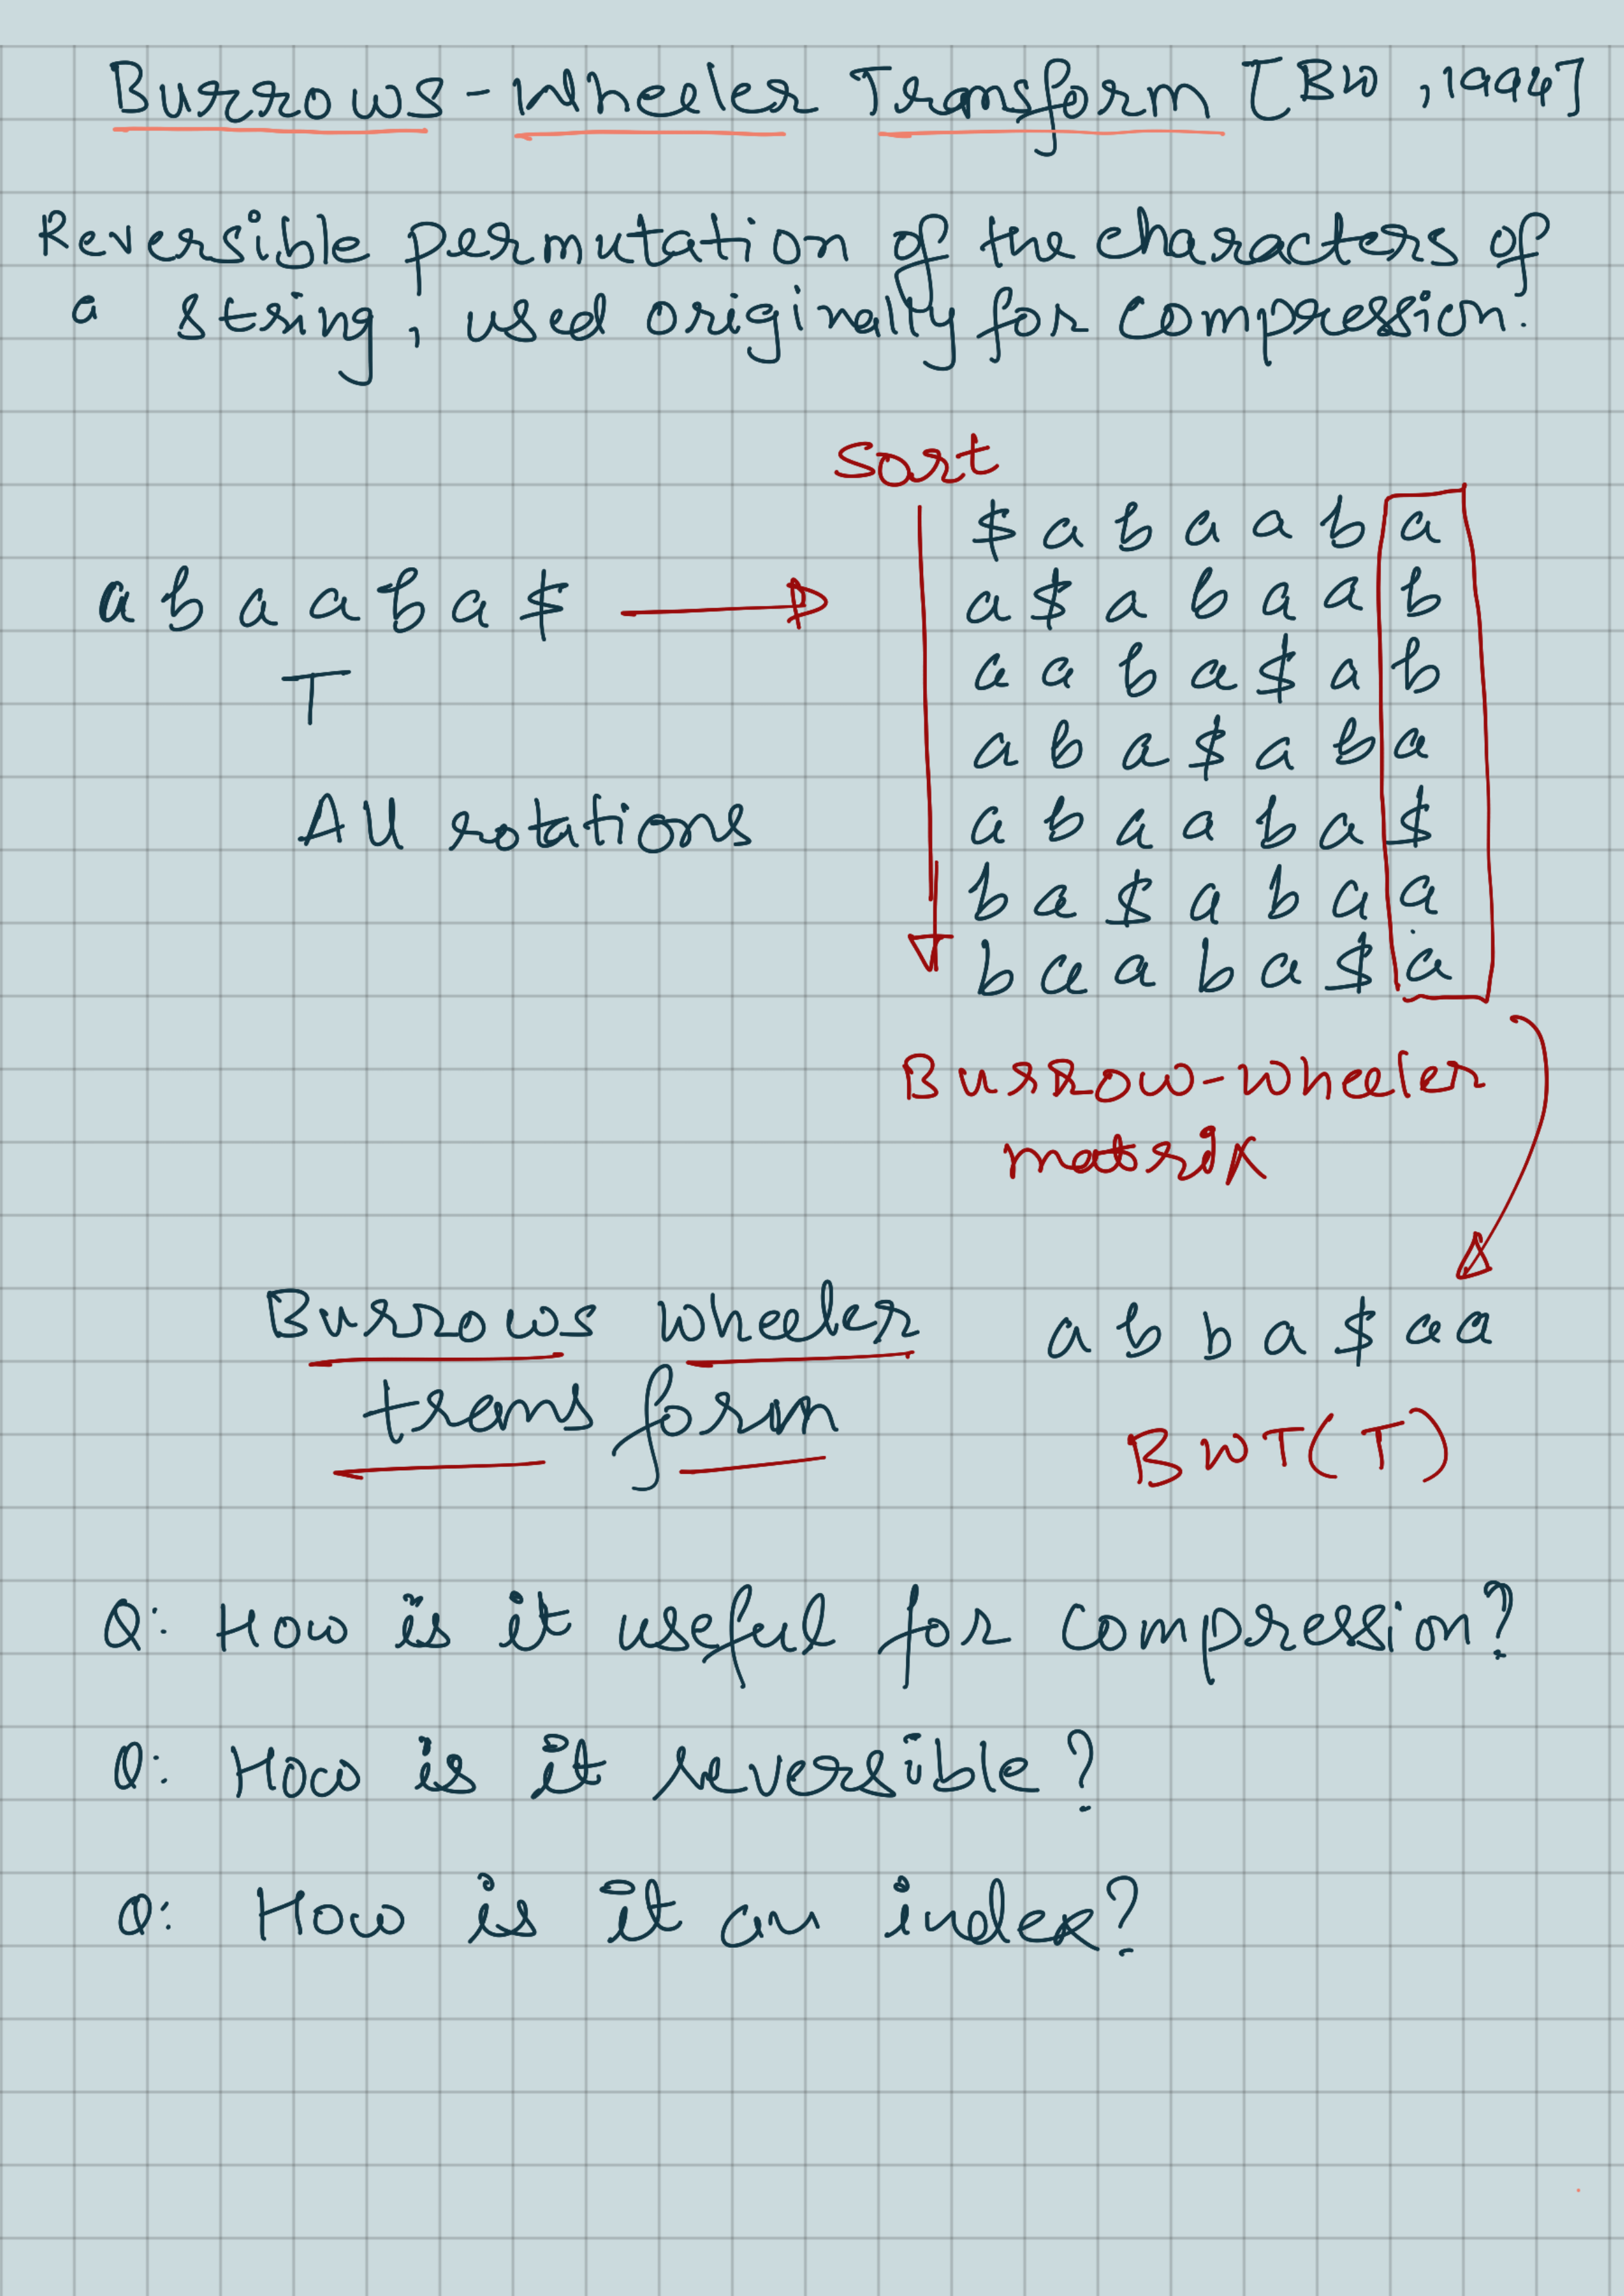 Burrows-Wheeler Transform [BW, 1994]
Reversible permutation of the characters of
a string, used originally for compression.
Sort
a b a a b a $
T
All rotations
$ a b a a b a
a $ a b a a b
a a b a $ a b
a b a $ a b a
a b a a b a $
b a $ a b a a
b a a b a $ a
Burrow-Wheeler
matrix
Burrows Wheeler
transform
a b b a $ a a
BWT(T)
Q: How is it useful for compression?
Q: How is it reversible?
Q: How is it an index?